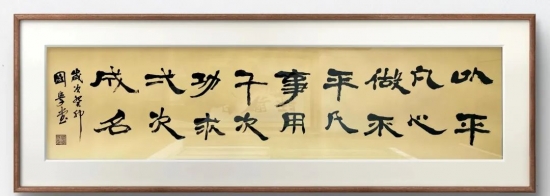 以平
凡心
做不
平凡
事用
千次
功求
弌次
成名
歲次癸卯